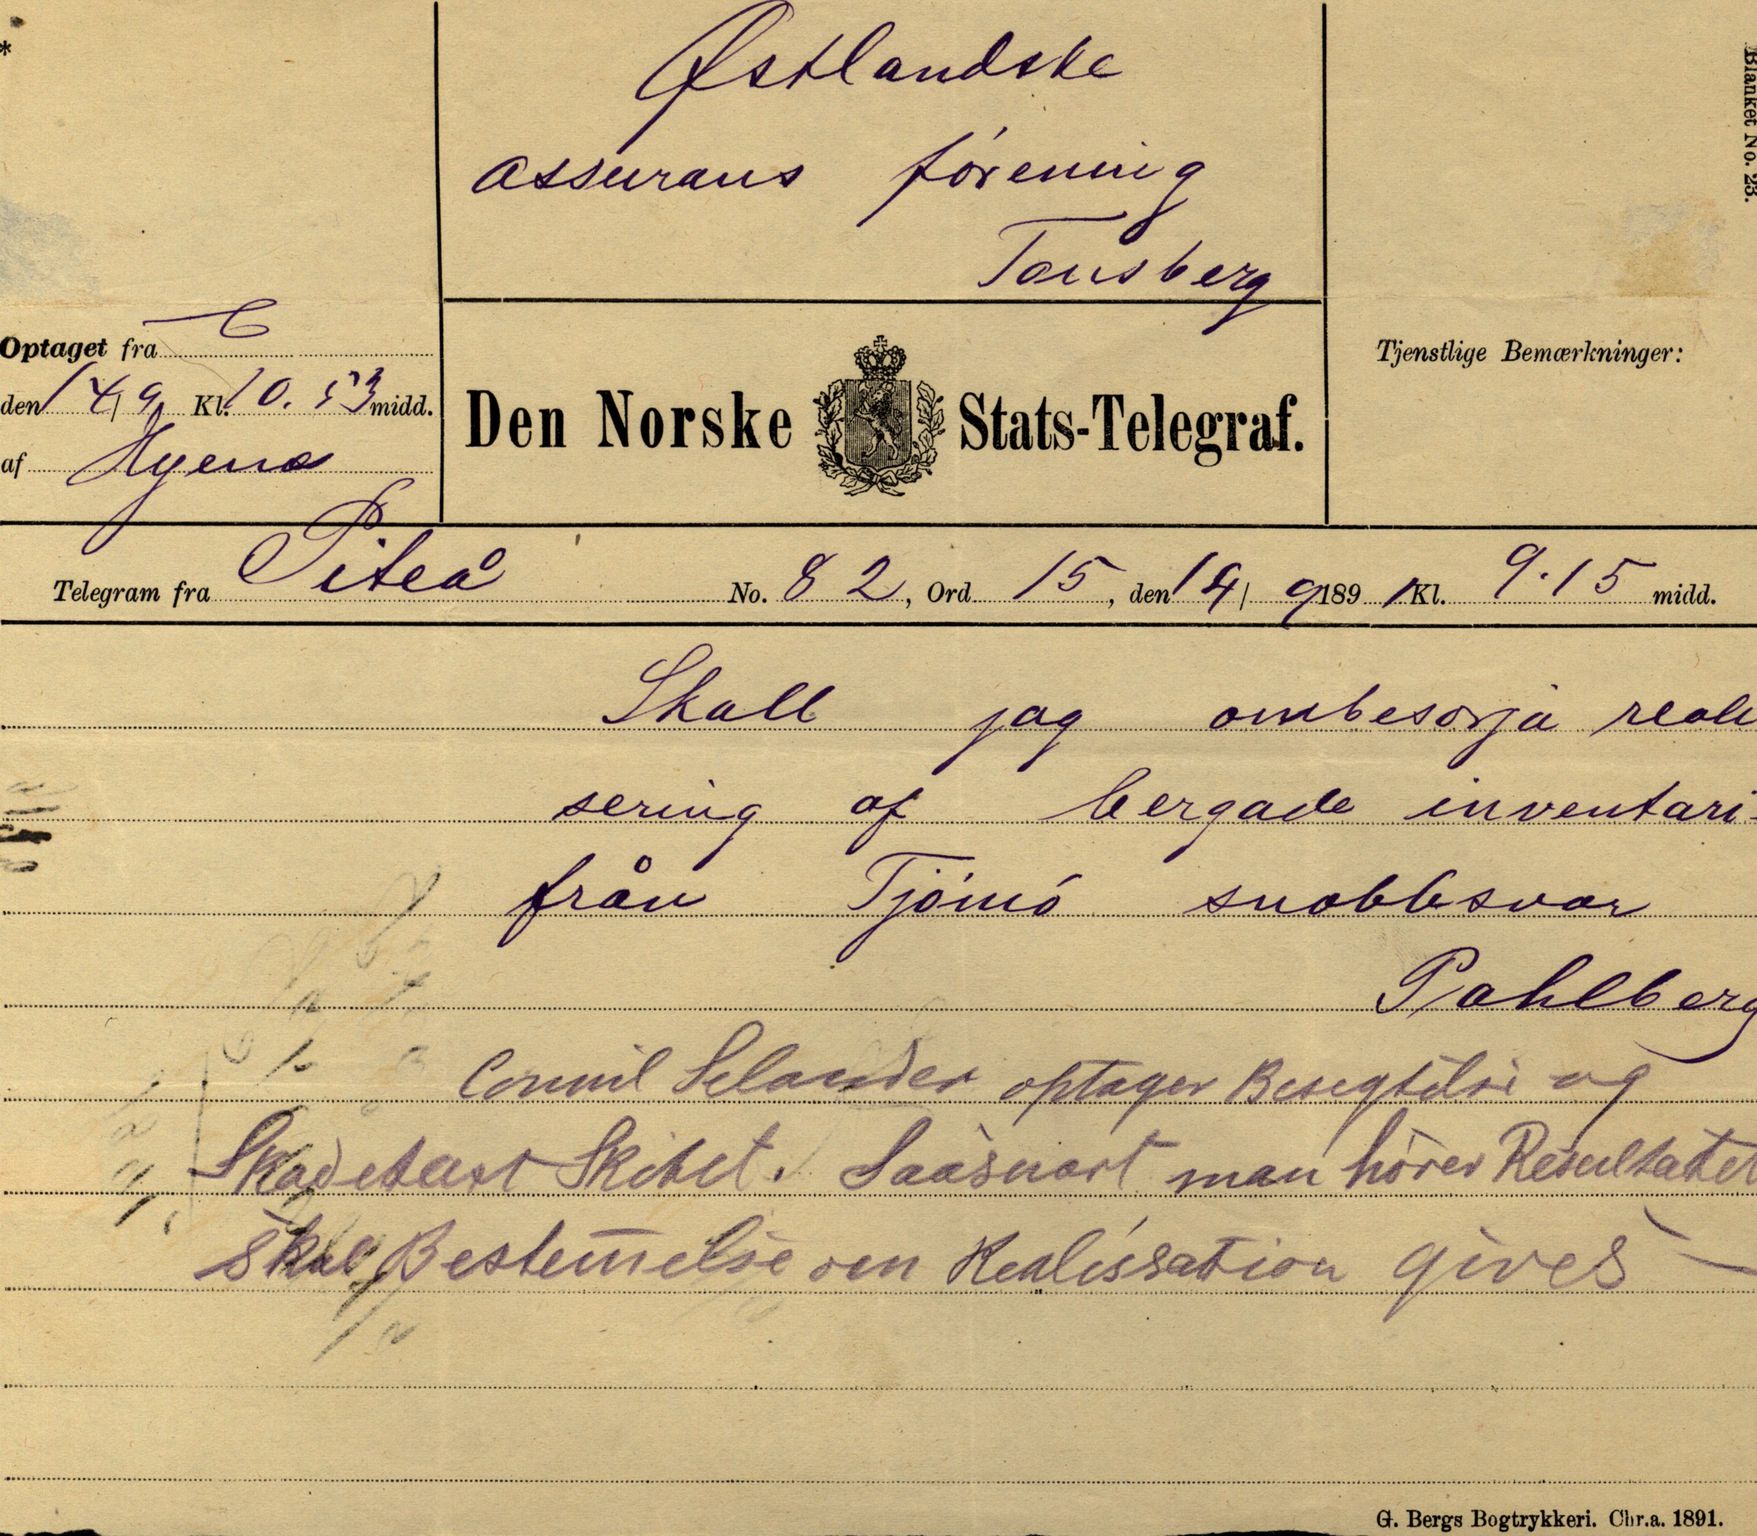 *
Østlandske
assurans förening
Tonsberg
Blanket No. 23.
Optaget fra C
den 14/9 Kl. 10.53 midd.
af Hyenæs
Den Norske Stats-Telegraf.
Tjenstlige Bemærkninger:
Telegram fra Piteå No. 82, Ord 15, den 14/9 1891 Kl. 9.15 midd.
Skall jag ombesörja reali
sering af bergade inventari-
från Tjömö snabbsvar
Pahlberg
Consul Selander optager Besegtelse og
Skadetaxt Skibet. Saasnart man hører Resultatet
skal Bestemelse om Realissation gives —
G. Bergs Bogtrykkeri. Chr.a. 1891.